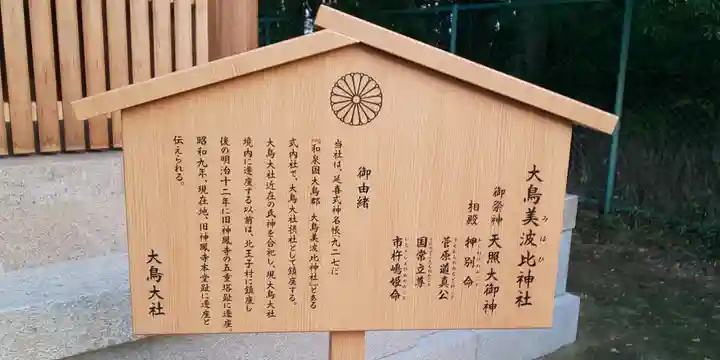 大鳥美波比神社
みはひ
御祭神 天照大御神
相殿 押別命
菅原道真公
国常立尊
市杵嶋姫命
御由緒
当社は、延喜式神名帳九二七に
『和泉国大鳥郡 大鳥美波比神社』とある
式内社で、大鳥大社摂社として鎮座する。
大鳥大社近在の氏神を合祀し、現大鳥大社
境内に遷座する以前は、北王子村に鎮座し
後の明治十二年に旧神鳳寺の五重塔趾に遷座。
昭和九年、現在地、旧神鳳寺本堂趾に遷座と
伝えられる。
大鳥大社